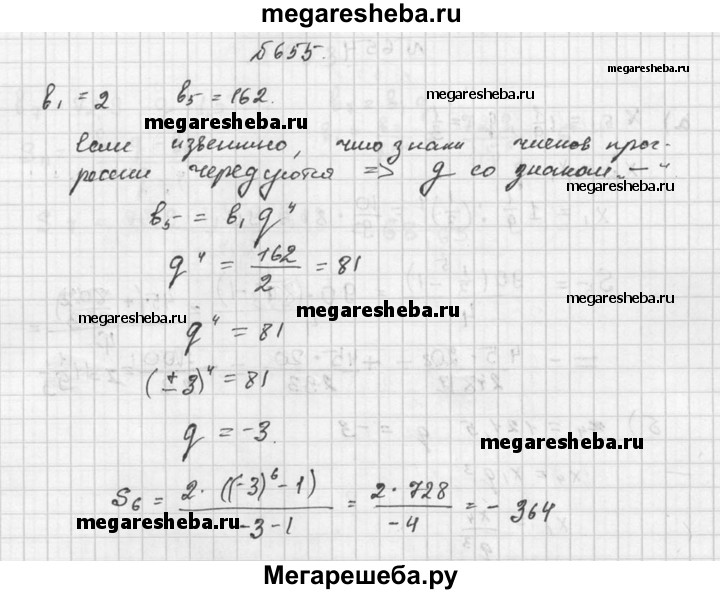 megaresheba.ru
№655.
megaresheba.ru
b₁ = 2 b₅ = 162.
megaresheba.ru
megaresheba.ru
Если известно, что знаки членов прог-
рессии чередуются => q со знаком „–“.
megaresheba.ru
b₅ = b₁ q⁴
q⁴ = 162/2 = 81
megaresheba.ru
megaresheba.ru
megaresheba.ru
q⁴ = 81
(±3)⁴ = 81
q = -3.
megaresheba.ru
S₆ = 2·((-3)⁶-1)/-3-1 = 2·728/-4 = -364
megaresheba.ru
Мегарешеба.ру